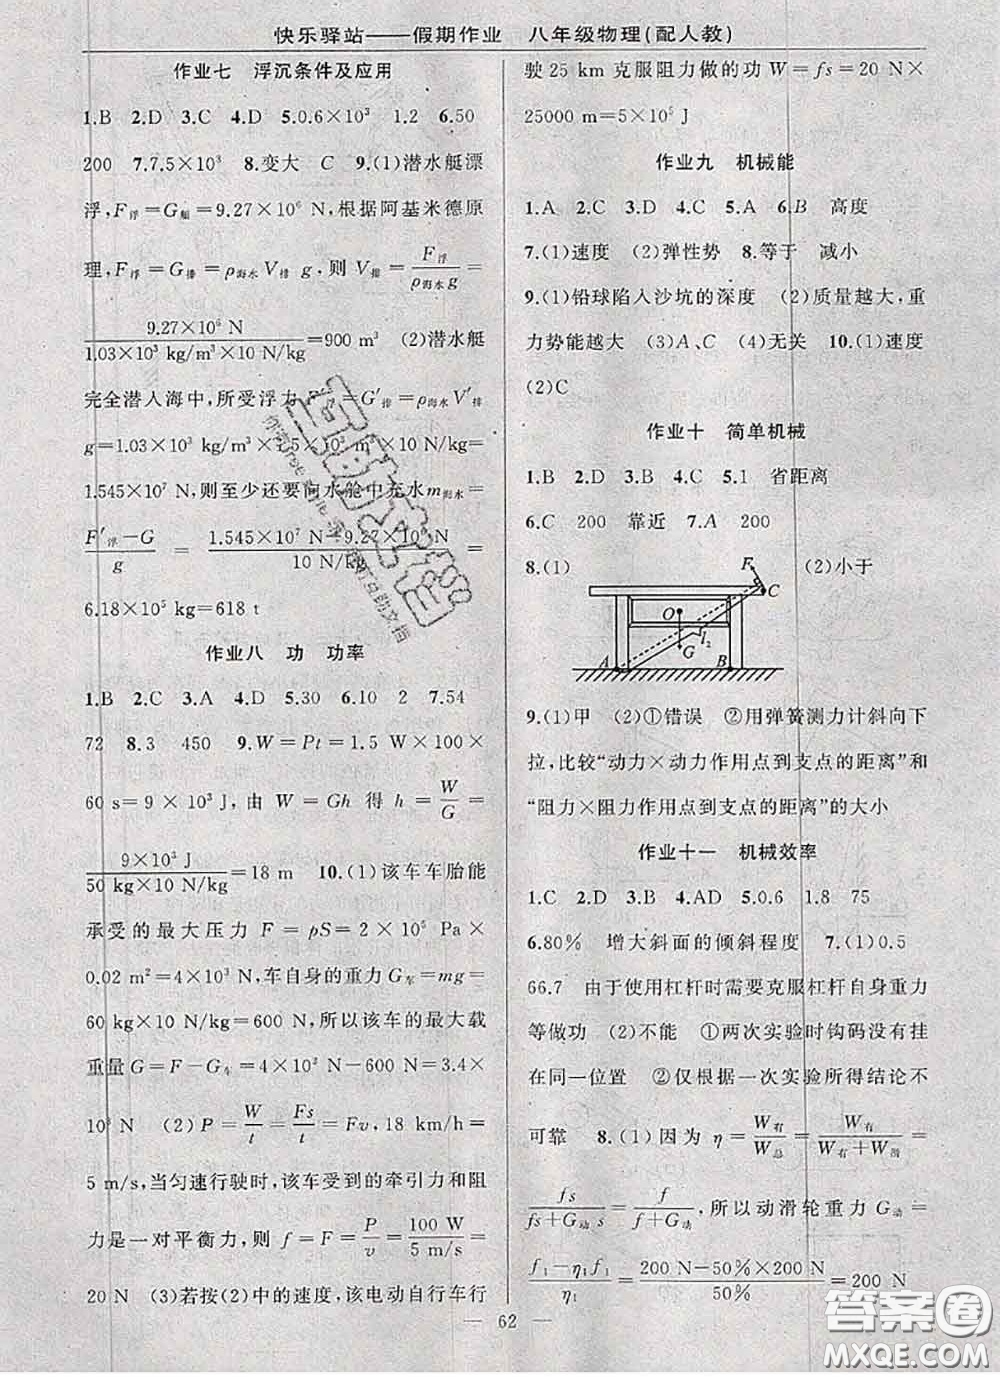 快乐驿站——假期作业 八年级物理(配人教)
作业七 浮沉条件及应用
1.B 2.D 3.C 4.D 5.0.6×10³ 1.2 6.50
200 7.7.5×10³ 8.变大 C 9.(1)潜水艇漂
浮,F浮=G艇=9.27×10⁶ N,根据阿基米德原
理,F浮=G排=ρ海水V排 g,则 V排=F浮/ρ海水g=
9.27×10⁶ N/1.03×10³ kg/m³×10 N/kg=900 m³ (2)潜水艇
完全潜入海中,所受浮力 F′浮=G′排=ρ海水V′排
g=1.03×10³ kg/m³×1.5×10³ m³×10 N/kg=
1.545×10⁷ N,则至少还要向水舱中充水m海水=
F′浮-G/g=1.545×10⁷ N-9.27×10⁶ N/10 N/kg=
6.18×10⁵ kg=618 t
作业八 功 功率
1.B 2.C 3.A 4.D 5.30 6.10 2 7.54
72 8.3 450 9.W=Pt=1.5 W×100×
60 s=9×10³ J,由 W=Gh 得 h=W/G=
9×10³ J/50 kg×10 N/kg=18 m 10.(1)该车车胎能
承受的最大压力 F=pS=2×10⁵ Pa×
0.02 m²=4×10³ N,车自身的重力G车=mg=
60 kg×10 N/kg=600 N,所以该车的最大载
重量G=F-G车=4×10³ N-600 N=3.4×
10³ N (2)P=W/t=Fs/t=Fv,18 km/h=
5 m/s,当匀速行驶时,该车受到的牵引力和阻
力是一对平衡力,则 f=F=P/v=100 W/5 m/s=
20 N (3)若按(2)中的速度,该电动自行车行
驶25 km克服阻力做的功W=fs=20 N×
25000 m=5×10⁵ J
作业九 机械能
1.A 2.C 3.D 4.C 5.A 6.B 高度
7.(1)速度 (2)弹性势 8.等于 减小
9.(1)铅球陷入沙坑的深度 (2)质量越大,重
力势能越大 (3)A、C (4)无关 10.(1)速度
(2)C
作业十 简单机械
1.B 2.D 3.B 4.C 5.1 省距离
6.C 200 靠近 7.A 200
8.(1) (2)小于
F
C
O
l₂
G
A
B
9.(1)甲 (2)①错误 ②用弹簧测力计斜向下
拉,比较“动力×动力作用点到支点的距离”和
“阻力×阻力作用点到支点的距离”的大小
作业十一 机械效率
1.C 2.D 3.B 4.AD 5.0.6 1.8 75
6.80% 增大斜面的倾斜程度 7.(1)0.5
66.7 由于使用杠杆时需要克服杠杆自身重力
等做功 (2)不能 ①两次实验时钩码没有挂
在同一位置 ②仅根据一次实验所得结论不
可靠 8.(1)因为 η=W有/W总=W有/W有+W额=
fs/fs+G动 s=f/f+G动,所以动滑轮重力 G动=
f₁-η₁f₁/η₁=200 N-50%×200 N/50%=200 N
62
答案圈
MXQE.COM